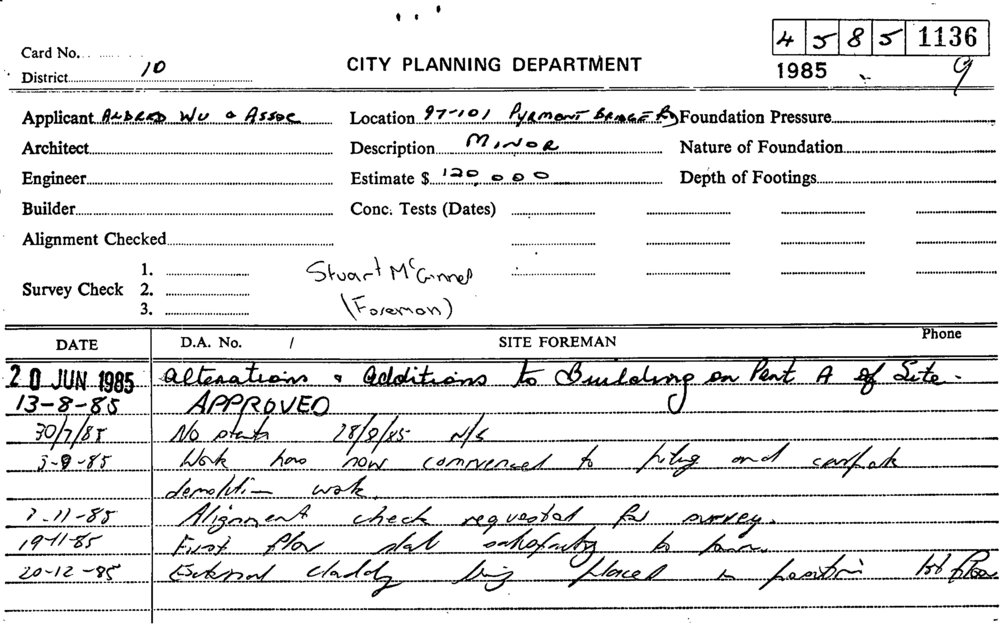 4 5 8 5 1136
Card No.
CITY PLANNING DEPARTMENT
1985 9
District 10
Applicant ALDRED WU & ASSOC Location 97-101 PYRMONT BRIDGE RD Foundation Pressure
Architect Description MINOR Nature of Foundation
Engineer Estimate $ 120,000 Depth of Footings
Builder Conc. Tests (Dates)
Alignment Checked
1.
Survey Check 2.
3.
Stuart McGinnes
(Foreman)
DATE D.A. No. / SITE FOREMAN Phone
20 JUN 1985 Alterations & Additions to Building on Part A of Site.
13-8-85 APPROVED
30/7/85 No start 28/8/85 N/S
3-9-85 Work has now commenced to piling and carpark
demolition work.
7-11-85 Alignment check requested for survey.
19-11-85 First floor slab satisfactory to
20-12-85 External cladding being placed in position 1st floor